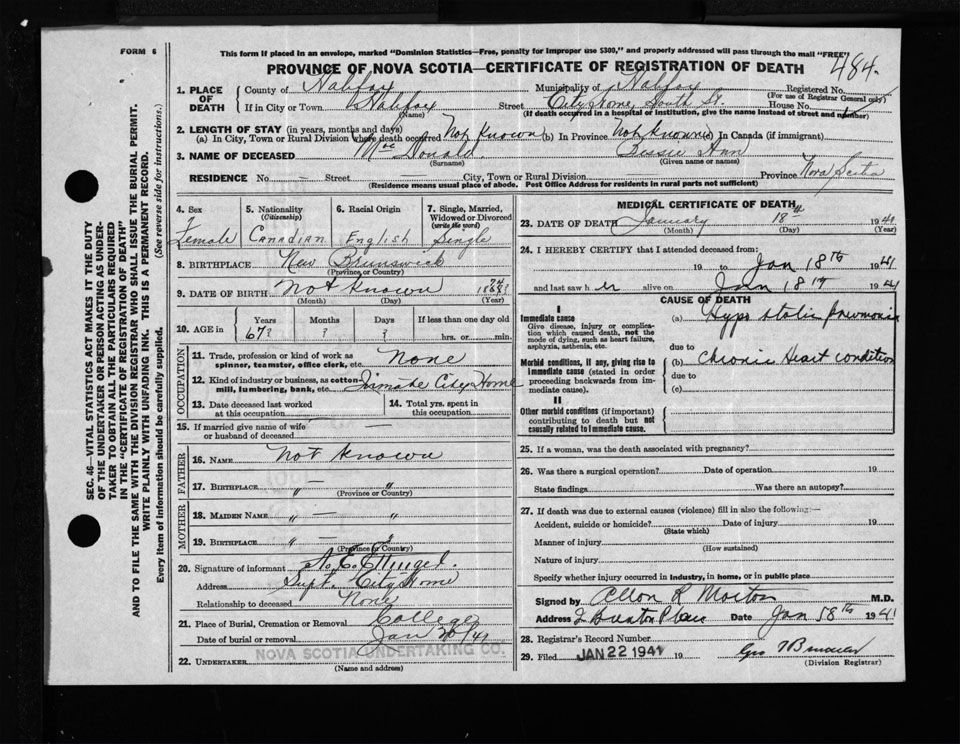 FORM 6
This form if placed in an envelope, marked "Dominion Statistics—Free, penalty for improper use $300," and properly addressed will pass through the mail "FREE"
PROVINCE OF NOVA SCOTIA—CERTIFICATE OF REGISTRATION OF DEATH
484.
1. PLACE OF DEATH
County of Halifax Municipality of Halifax Registered No.
(For use of Registrar General only)
If in City or Town Halifax Street City Home, South St. House No.
(Name) (If death occurred in a hospital or institution, give the name instead of street and number)
2. LENGTH OF STAY (in years, months and days)
(a) In City, Town or Rural Division where death occurred Not Known (b) In Province Not Known (c) In Canada (if immigrant)
3. NAME OF DECEASED MacDonald. Bessie Ann
(Surname) (Given name or names)
RESIDENCE No. — Street City, Town or Rural Division Province Nova Scotia
(Residence means usual place of abode. Post Office Address for residents in rural parts not sufficient)
4. Sex Female
5. Nationality (Citizenship) Canadian
6. Racial Origin English
7. Single, Married, Widowed or Divorced (write the word) Single
8. BIRTHPLACE New Brunswick
(Province or Country)
9. DATE OF BIRTH Not Known 18
(Month) (Day) (Year)
10. AGE in Years Months Days If less than one day old
67? ? ? hrs. or min.
OCCUPATION
11. Trade, profession or kind of work as spinner, teamster, office clerk, etc. None
12. Kind of industry or business, as cotton-mill, lumbering, bank, etc. Inmate City Home
13. Date deceased last worked at this occupation
14. Total yrs. spent in this occupation
15. If married give name of wife or husband of deceased —
FATHER
16. NAME Not Known
17. BIRTHPLACE " — "
(Province or Country)
MOTHER
18. MAIDEN NAME " — "
19. BIRTHPLACE " — "
(Province or Country)
20. Signature of informant
Address Supt. City Home
Relationship to deceased None
21. Place of Burial, Cremation or Removal College
Date of burial or removal Jan 20/41
22. UNDERTAKER NOVA SCOTIA UNDERTAKING CO.
(Name and address)
MEDICAL CERTIFICATE OF DEATH
23. DATE OF DEATH January 18th 1941
(Month) (Day) (Year)
24. I HEREBY CERTIFY that I attended deceased from:
19 to Jan 18th 1941
and last saw her alive on Jan 18th 1941
CAUSE OF DEATH
I
Immediate cause
Give disease, injury or complication which caused death, not the mode of dying, such as heart failure, asphyxia, asthenia, etc.
(a) Hypostatic pneumonia
due to
Morbid conditions, if any, giving rise to immediate cause (stated in order proceeding backwards from immediate cause).
(b) Chronic Heart condition
due to
(c)
II
Other morbid conditions (if important) contributing to death but not causally related to immediate cause.
25. If a woman, was the death associated with pregnancy?
26. Was there a surgical operation? Date of operation 19
State findings Was there an autopsy?
27. If death was due to external causes (violence) fill in also the following:—
Accident, suicide or homicide? Date of injury 19
(State which)
Manner of injury
(How sustained)
Nature of injury
Specify whether injury occurred in industry, in home, or in public place
Signed by Allan R Morton M.D.
Address Date Jan 18th 1941
28. Registrar's Record Number
29. Filed JAN 22 1941 19
(Division Registrar)
SEC. 46—VITAL STATISTICS ACT MAKES IT THE DUTY
OF THE UNDERTAKER OR PERSON ACTING AS UNDER-
TAKER TO OBTAIN ALL THE PARTICULARS REQUIRED
IN THE "CERTIFICATE OF REGISTRATION OF DEATH"
AND TO FILE THE SAME WITH THE DIVISION REGISTRAR WHO SHALL ISSUE THE BURIAL PERMIT.
WRITE PLAINLY WITH UNFADING INK. THIS IS A PERMANENT RECORD.
Every item of information should be carefully supplied. (See reverse side for instructions.)